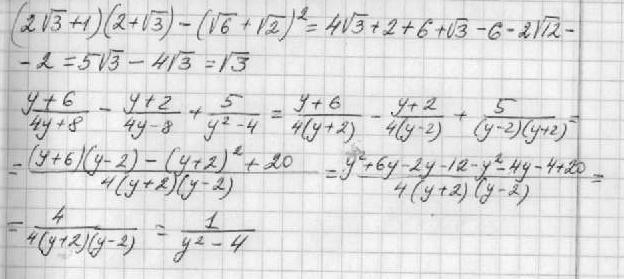 (2√3+1)(2+√3)-(√6+√2)²=4√3+2+6+√3-6-2√12-
-2=5√3-4√3=√3
(y+6)/(4y+8) - (y+2)/(4y-8) + 5/(y²-4) = (y+6)/(4(y+2)) - (y+2)/(4(y-2)) + 5/((y-2)(y+2)) =
= ((y+6)(y-2)-(y+2)²+20)/(4(y+2)(y-2)) = (y²+6y-2y-12-y²-4y-4+20)/(4(y+2)(y-2)) =
= 4/(4(y+2)(y-2)) = 1/(y²-4)